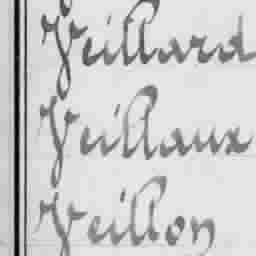 Veillard
Veillaux
Veillon